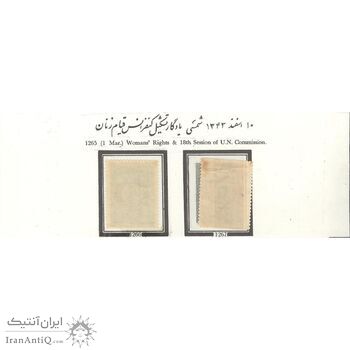 ۱۰ اسفند ۱۳۴۳ شمسی یادگار تشکیل کنفرانس قیام زنان
1265 (1 Mar.) Womans' Rights & 18th Session of U.N. Commission.
1266 1267
ایران آنتیک
IranAntiQ.com